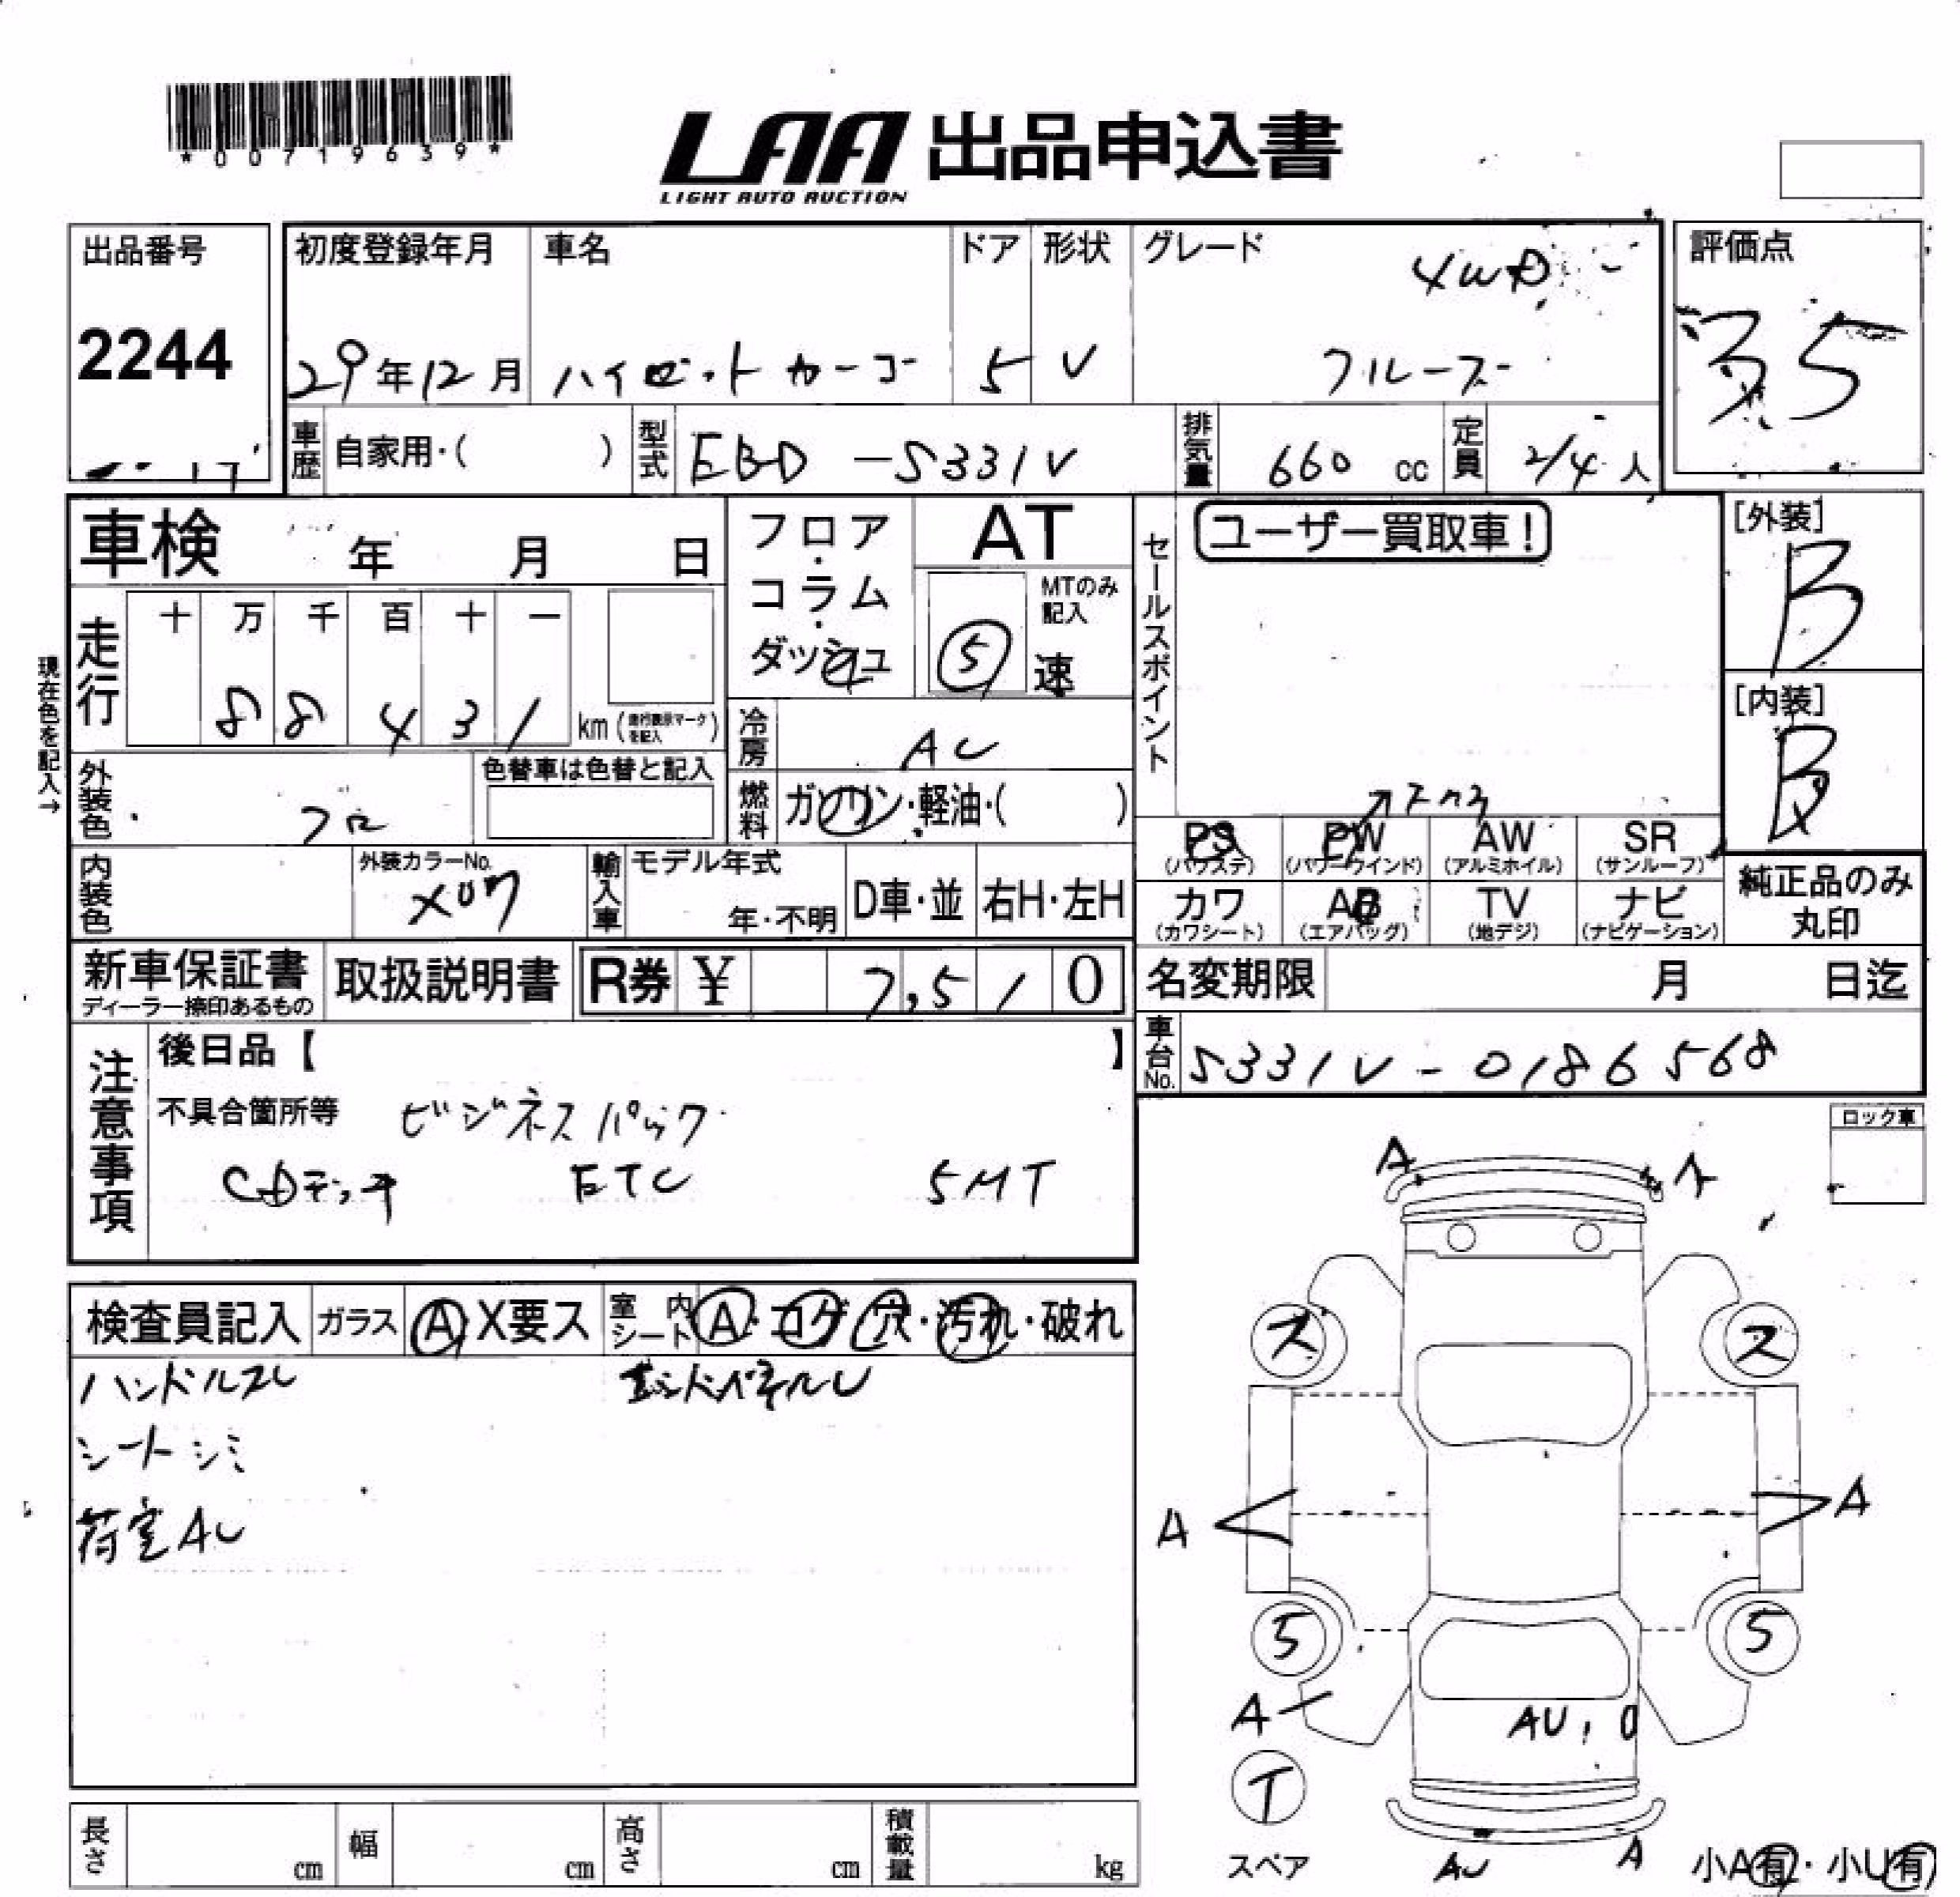 *00719639*
LAA 出品申込書
LIGHT AUTO AUCTION
出品番号
2244
初度登録年月
29年12月
車名
ハイゼットカーゴ
ドア
5
形状
V
グレード
4WD
クルーズ
評価点
3.5
車歴 自家用・( )
型式 EBD-S331V
排気量 660 cc
定員 2/4 人
車検 年 月 日
フロア・コラム・ダッシュ
AT
MTのみ記入
5 速
セールスポイント
ユーザー買取車!
[外装]
B
[内装]
B
現在色を記入→
走行
十 万 千 百 十 一
8 8 4 3 1 km (走行表示マークを記入)
冷房 AC
外装色
色替車は色替と記入
燃料 ガソリン・軽油・( )
PS (パワステ)
PW (パワーウインド)
AW (アルミホイル)
SR (サンルーフ)
カワ (カワシート)
AB (エアバッグ)
TV (地デジ)
ナビ (ナビゲーション)
純正品のみ丸印
内装色
外装カラーNo.
X07
輸入車
モデル年式
年・不明
D車・並
右H・左H
新車保証書
ディーラー捺印あるもの
取扱説明書
R券 ¥ 7,510
名変期限 月 日迄
車台No. S331V-0186568
注意事項
後日品【 】
不具合箇所等 ビジネスパック
CDデッキ ETC 5MT
ロック車
検査員記入 ガラス A X要ス 室内シート A・コゲ・穴・汚れ・破れ
ハンドルスレ エンドパネルU
シートシミ
荷室AU
A A
ス ス
A A
5 5
A
AU,
T
スペア
AU A
小A有・小U有
長さ cm
幅 cm
高さ cm
積載量 kg